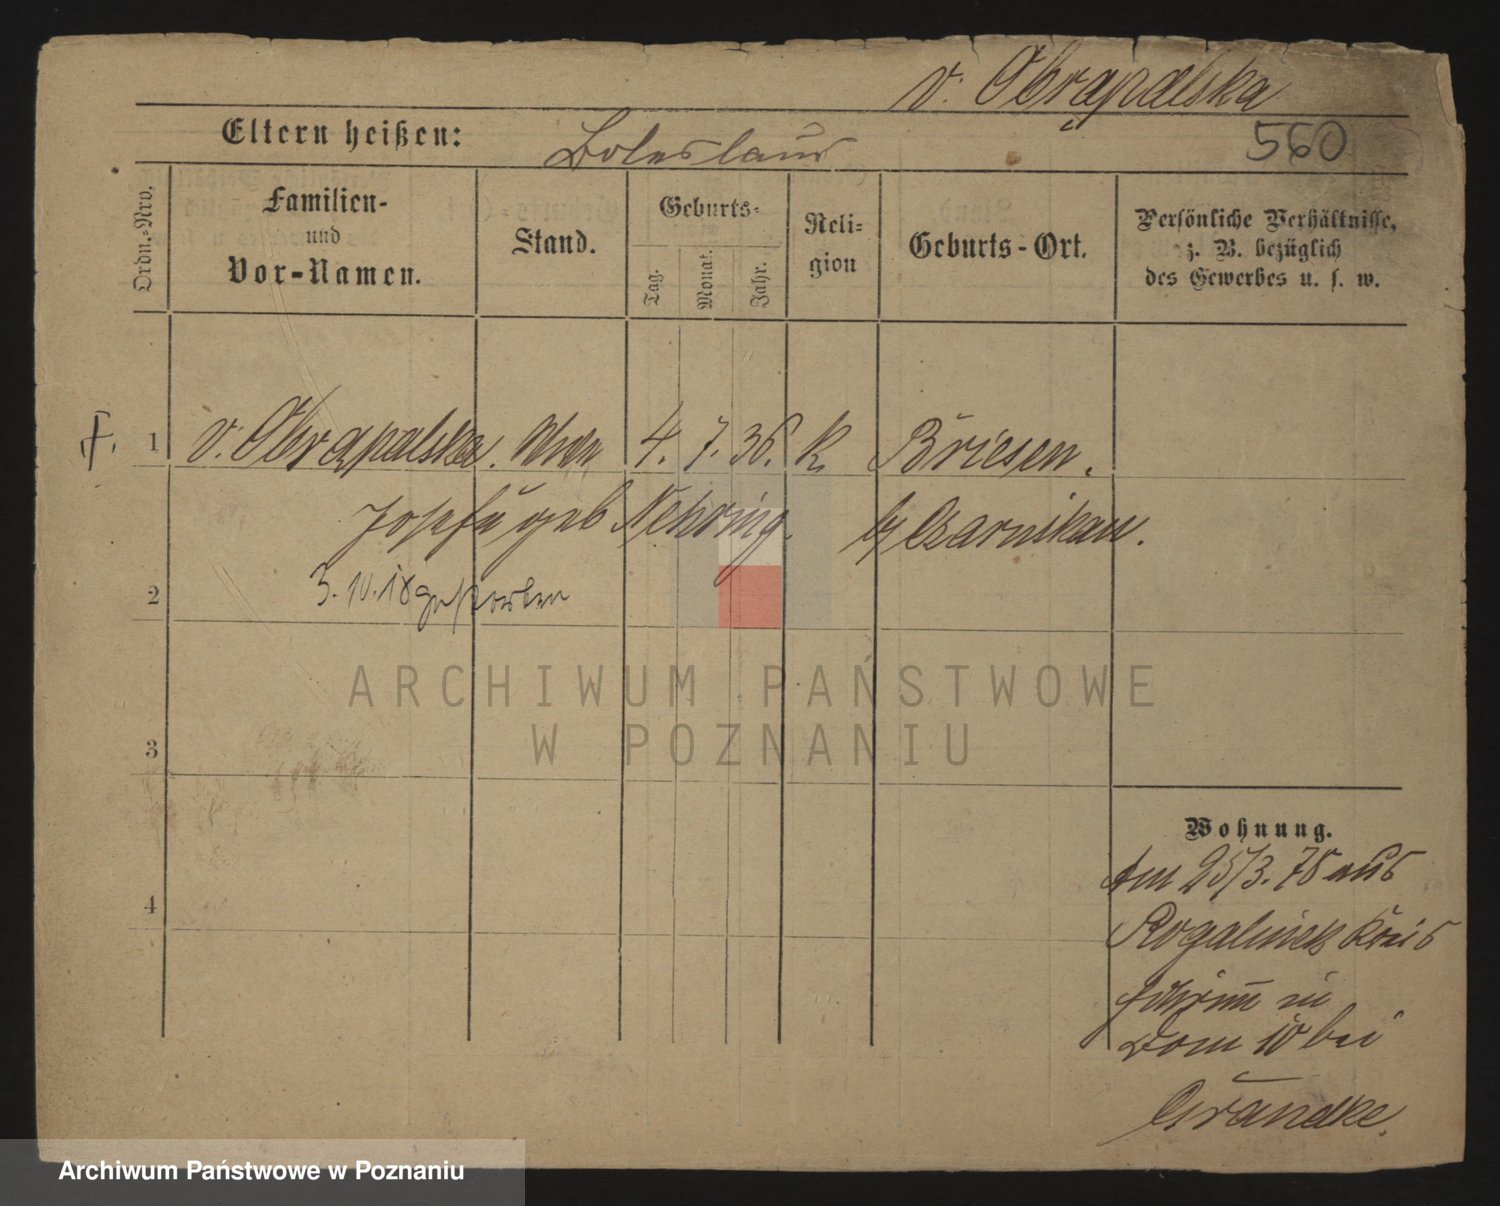 v. Obrąpalska
Eltern heißen:
Boleslaus
560
Ordn.-Nro.
Familien-
und
Vor-Namen.
Stand.
Geburts-
Tag.
Monat.
Jahr.
Reli-
gion
Geburts-Ort.
Persönliche Verhältnisse,
z. B. bezüglich
des Gewerbes u. s. w.
1 v. Obrąpalska. 4. 7. 36. k. Briesen.
Josefa geb Nehring. b/ Czarnikau.
2 3. 10. 18 gestorben
ARCHIWUM PAŃSTWOWE
W POZNANIU
3
Wohnung.
Am 25/3. 78 aus
4
Rogalinek Kreis
Schrimm in
Dom 10 bei
Grandke.
Archiwum Państwowe w Poznaniu